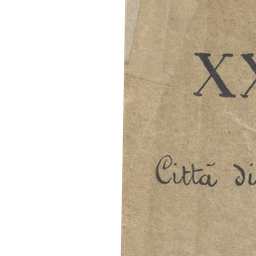 XX
Città di